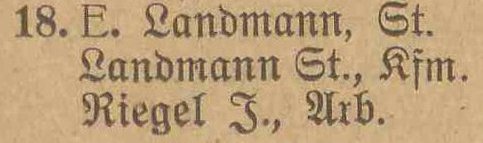 18. E. Landmann, St.
Landmann St., Kfm.
Riegel J., Arb.